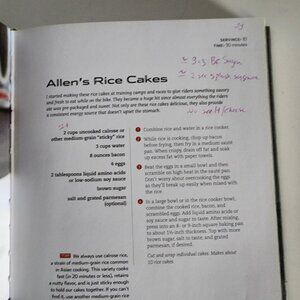 SERVINGS› 10
TIME› 30 minutes
Allen's Rice Cakes
I started making these rice cakes at training camps and races to give riders something savory
and fresh to eat while on the bike. They became a huge hit since almost everything the riders
eat was pre-packaged and sweet. Not only are these rice cakes delicious, they also provide
a consistent energy source that doesn't upset the stomach.
2 cups uncooked calrose or
other medium-grain "sticky" rice
3 cups water
8 ounces bacon
4 eggs
2 tablespoons liquid aminos
or low-sodium soy sauce
brown sugar
salt and grated parmesan
(optional)
TIP We always use calrose rice,
a strain of medium-grain rice common
in Asian cooking. This variety cooks
fast (in 20 minutes or less), retains
a nutty flavor, and is just sticky enough
to hold our cakes together. If you can't
find it, use another medium-grain rice
1 Combine rice and water in a rice cooker.
2 While rice is cooking, chop up bacon
before frying, then fry in a medium sauté
pan. When crispy, drain off fat and soak
up excess fat with paper towels.
3 Beat the eggs in a small bowl and then
scramble on high heat in the sauté pan.
Don't worry about overcooking the eggs
as they'll break up easily when mixed with
the rice.
4 In a large bowl or in the rice cooker bowl,
combine the cooked rice, bacon, and
scrambled eggs. Add liquid aminos or
soy sauce and sugar to taste. After mixing,
press into an 8- or 9-inch square baking pan
to about 1½-inch thickness. Top with more
brown sugar, salt to taste, and grated
parmesan, if desired.
Cut and wrap individual cakes. Makes about
10 rice cakes.